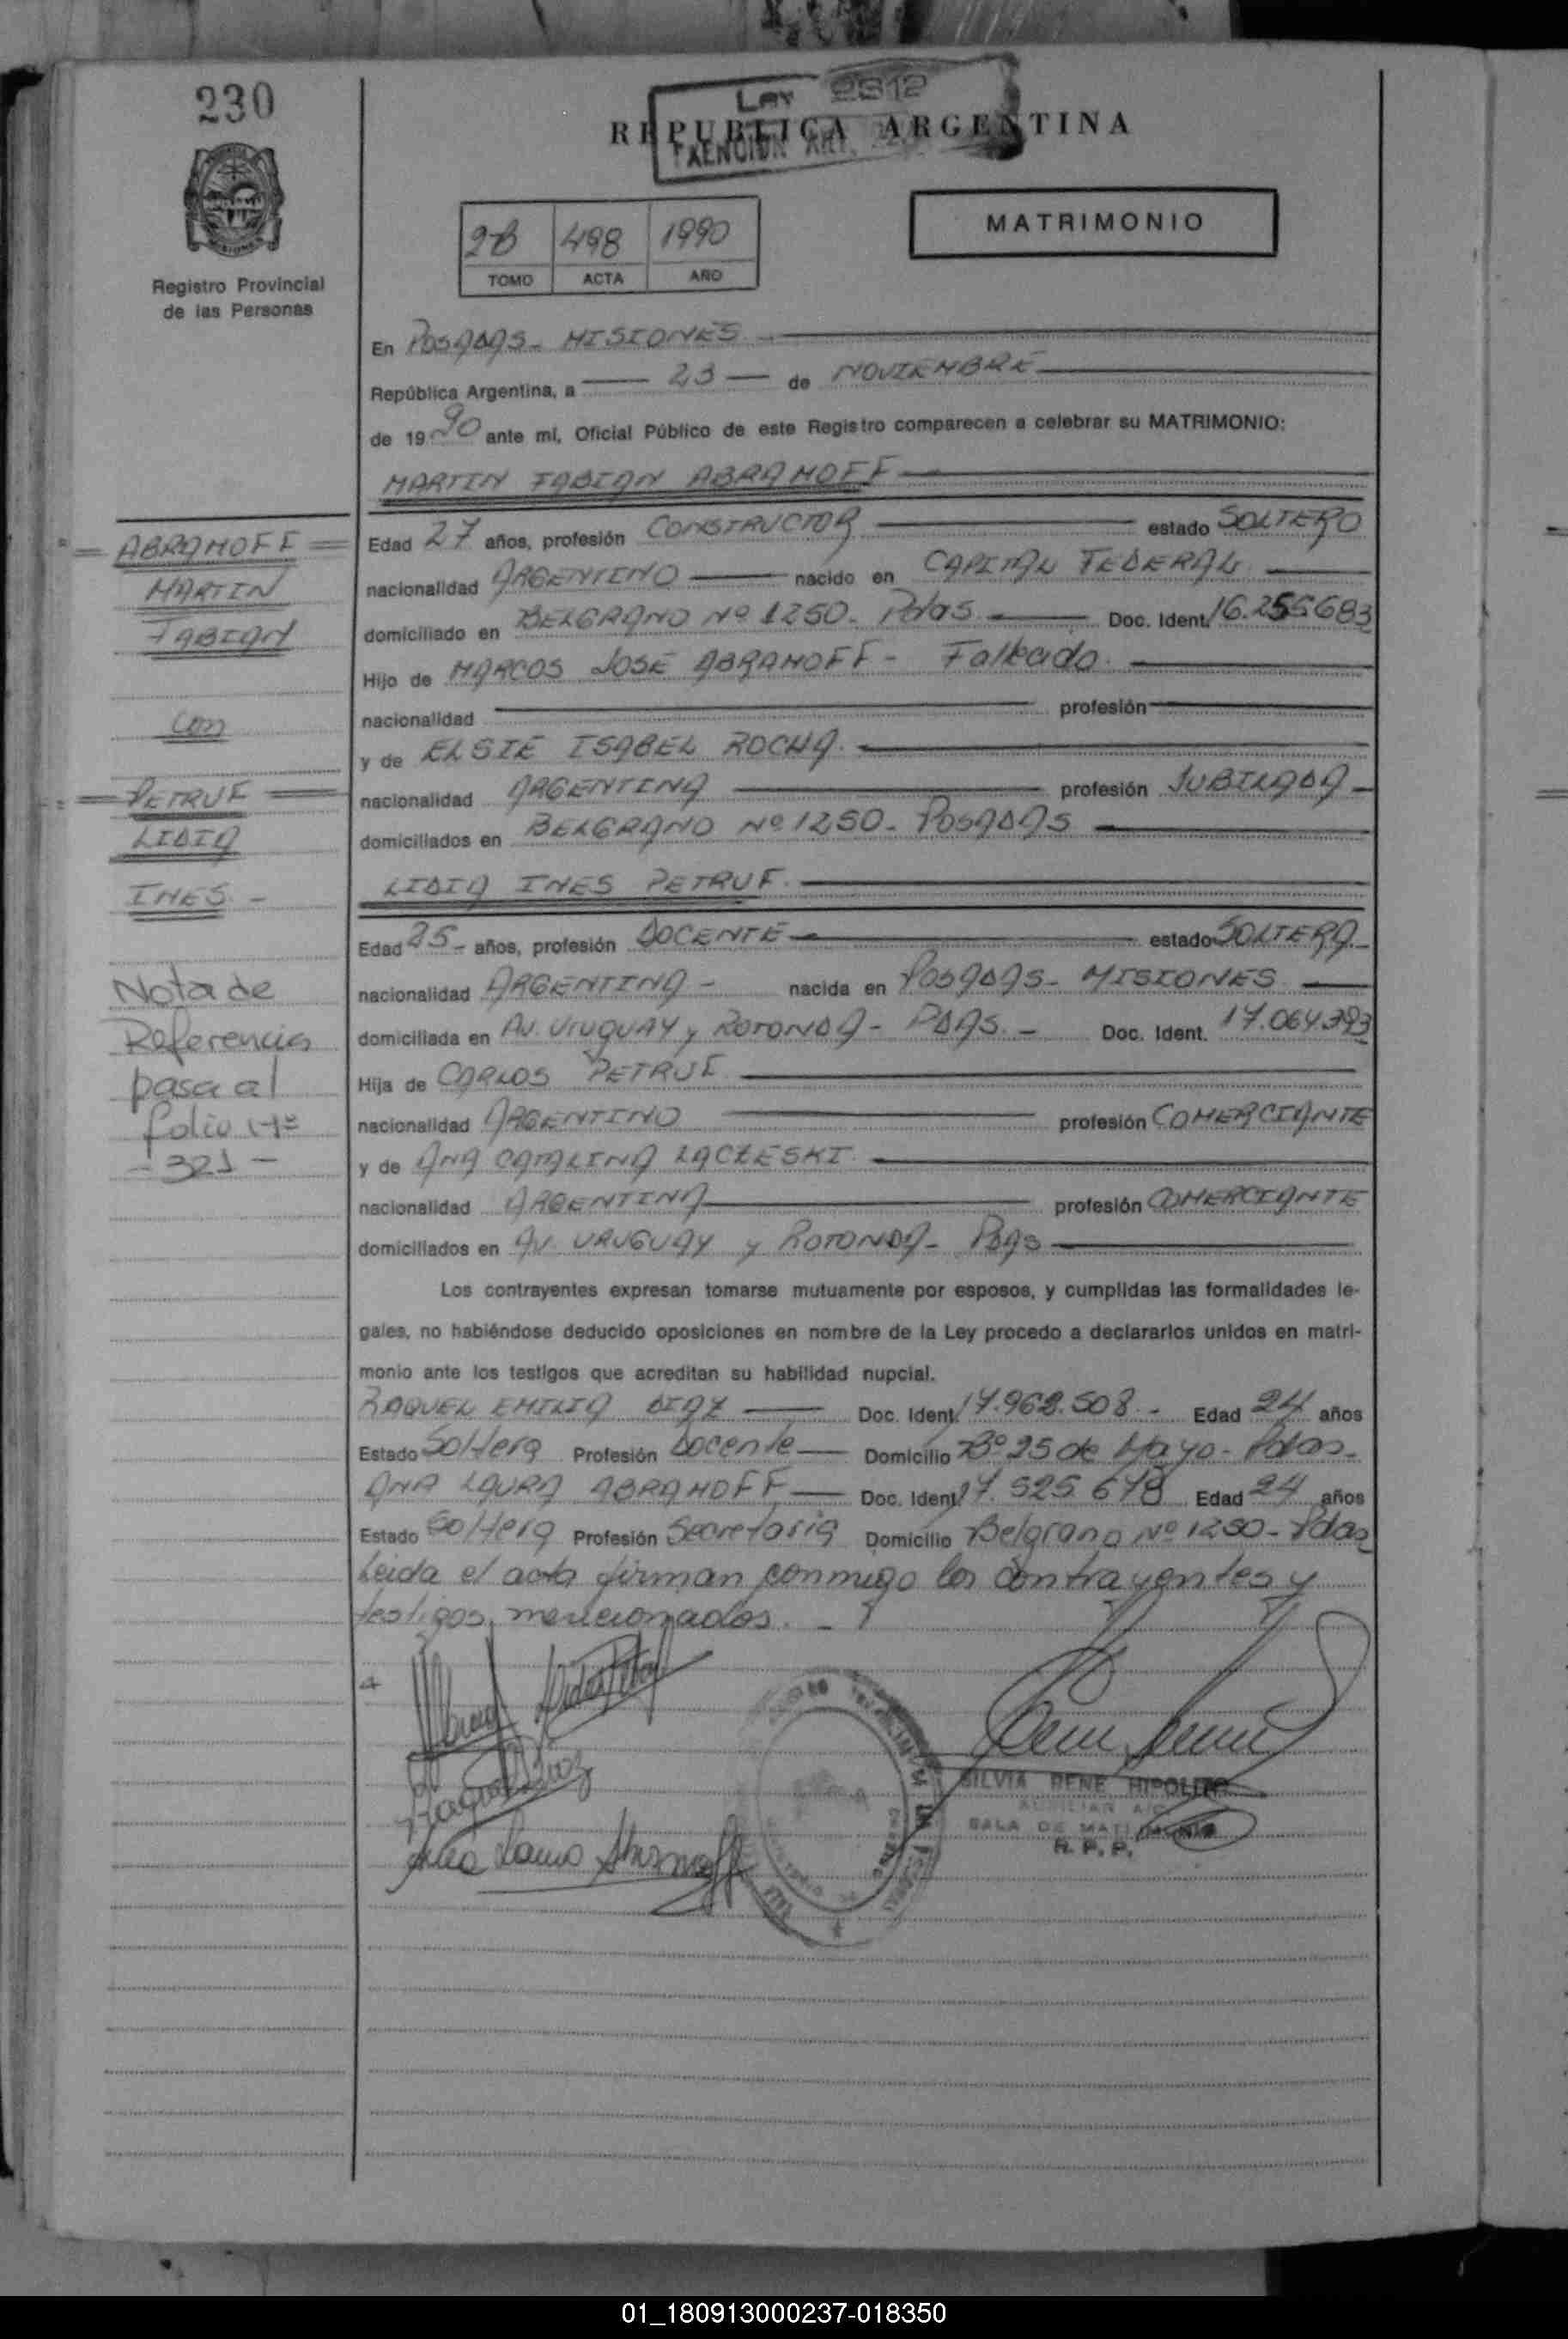 230
Registro Provincial
de las Personas
LEY 2612
EXENCION ART.
REPUBLICA ARGENTINA
2B 498 1990
TOMO ACTA AÑO
MATRIMONIO
En POSADAS - MISIONES
República Argentina, a 23 de NOVIEMBRE
de 1990 ante mí, Oficial Público de este Registro comparecen a celebrar su MATRIMONIO:
MARTIN FABIAN ABRAMOFF
Edad 27 años, profesión CONSTRUCTOR estado SOLTERO
nacionalidad ARGENTINO nacido en CAPITAL FEDERAL
domiciliado en BELGRANO Nº 1250 - Pdas. Doc. Ident. 16.255683
Hijo de MARCOS JOSE ABRAMOFF - Fallecido.
nacionalidad profesión
y de ELSIE ISABEL ROCHA.
nacionalidad ARGENTINA profesión JUBILADA
domiciliados en BELGRANO Nº 1250 - POSADAS
LIDIA INES PETRUF.
Edad 25 - años, profesión DOCENTE estado SOLTERA
nacionalidad ARGENTINA - nacida en POSADAS - MISIONES
domiciliada en AV. URUGUAY y ROTONDA - PDAS. - Doc. Ident. 17.064.393
Hija de CARLOS PETRUF
nacionalidad ARGENTINO profesión COMERCIANTE
y de ANA CATALINA LACZESKI.
nacionalidad ARGENTINA profesión COMERCIANTE
domiciliados en AV. URUGUAY y ROTONDA - PDAS
Los contrayentes expresan tomarse mutuamente por esposos, y cumplidas las formalidades le-
gales, no habiéndose deducido oposiciones en nombre de la Ley procedo a declararlos unidos en matri-
monio ante los testigos que acreditan su habilidad nupcial.
RAQUEL EMILIA DIAZ Doc. Ident. 17.962.508 - Edad 24 años
Estado Soltera Profesión Docente Domicilio Bº 25 de Mayo - Pdas -
ANA LAURA ABRAMOFF Doc. Ident. 17.525.678 Edad 24 años
Estado Soltera Profesión Secretaria Domicilio Belgrano Nº 1250 - Pdas
Leida el acta firman conmigo los contrayentes y
testigos mencionados. -
Ana Laura Abramoff
SILVIA RENE HIPOLITO
AUXILIAR A/C
SALA DE MATRIMONIO
R. P. P.
ABRAMOFF
MARTIN
FABIAN
con
PETRUF
LIDIA
INES -
Nota de
Referencia
pasa al
folio Nº
- 321 -
01_180913000237-018350